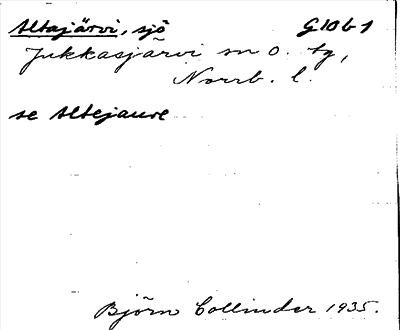 Altajärvi, sjö G10b1
Jukkasjärvi sn o. tg,
Norrb. l.
se Altejaure
Björn Collinder 1935.